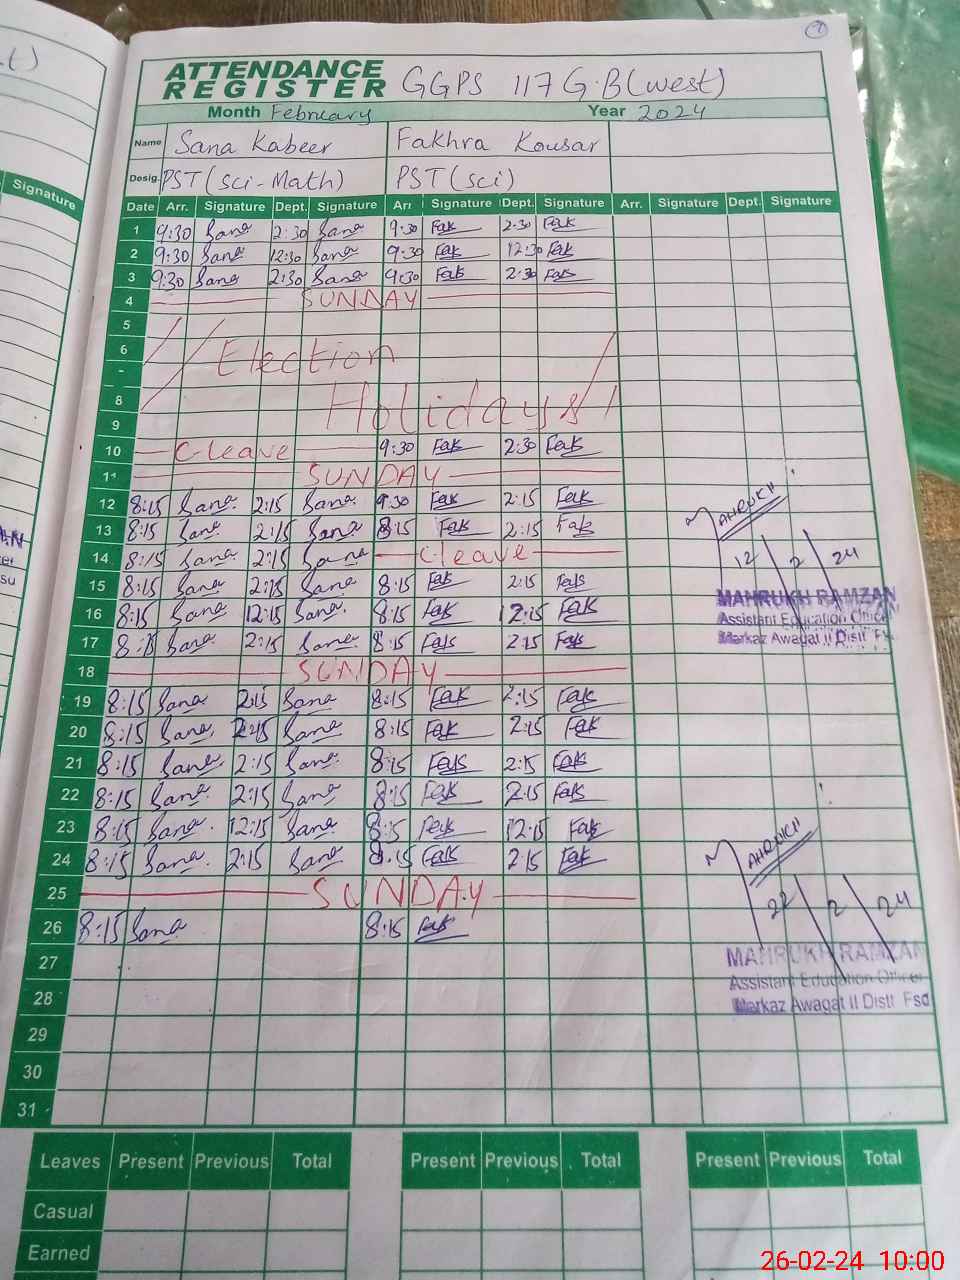 ATTENDANCE REGISTER GGPS 117 G.B (west)
Month February Year 2024
Name Sana Kabeer Fakhra Kousar
Desig. PST (sci-Math) PST (sci)
Signature Date Arr. Signature Dept. Signature Arr Signature Dept. Signature Arr. Signature Dept. Signature
1 9:30 Sana 2:30 Sana 9:30 Fak 2:30 Fak
2 9:30 Sana 12:30 Sana 9:30 Fak 12:30 Fak
3 9:30 Sana 2:30 Sana 9:30 Fak 2:30 Fak
4 SUNDAY
5
6 Election
8 Holidays
9
10 Cleave 9:30 Fak 2:30 Fak
11 SUNDAY
12 8:15 Sana 2:15 Sana 9:30 Fak 2:15 Fak
13 8:15 Sana 2:15 Sana 8:15 Fak 2:15 Fak
14 8:15 Sana 2:15 Sana Cleave
15 8:15 Sana 2:15 Sana 8:15 Fak 2:15 Fak
16 8:15 Sana 12:15 Sana 8:15 Fak 12:15 Fak
17 8:15 Sana 2:15 Sana 8:15 Fak 2:15 Fak
MAHRUKH
12/2/24
MAHRUKH RAMZAN
Assistant Education Officer
Markaz Awagat II Distt Fsd
18 SUNDAY
19 8:15 Sana 2:15 Sana 8:15 Fak 2:15 Fak
20 8:15 Sana 2:15 Sana 8:15 Fak 2:15 Fak
21 8:15 Sana 2:15 Sana 8:15 Fak 2:15 Fak
22 8:15 Sana 2:15 Sana 8:15 Fak 2:15 Fak
23 8:15 Sana 12:15 Sana 8:15 Fak 12:15 Fak
24 8:15 Sana 2:15 Sana 8:15 Fak 2:15 Fak
25 SUNDAY
26 8:15 Sana 8:15 Fak
27
28
MAHRUKH
22/2/24
MAHRUKH RAMZAN
Assistant Education Officer
Markaz Awagat II Distt Fsd
29
30
31
Leaves Present Previous Total Present Previous Total Present Previous Total
Casual
Earned
26-02-24 10:00